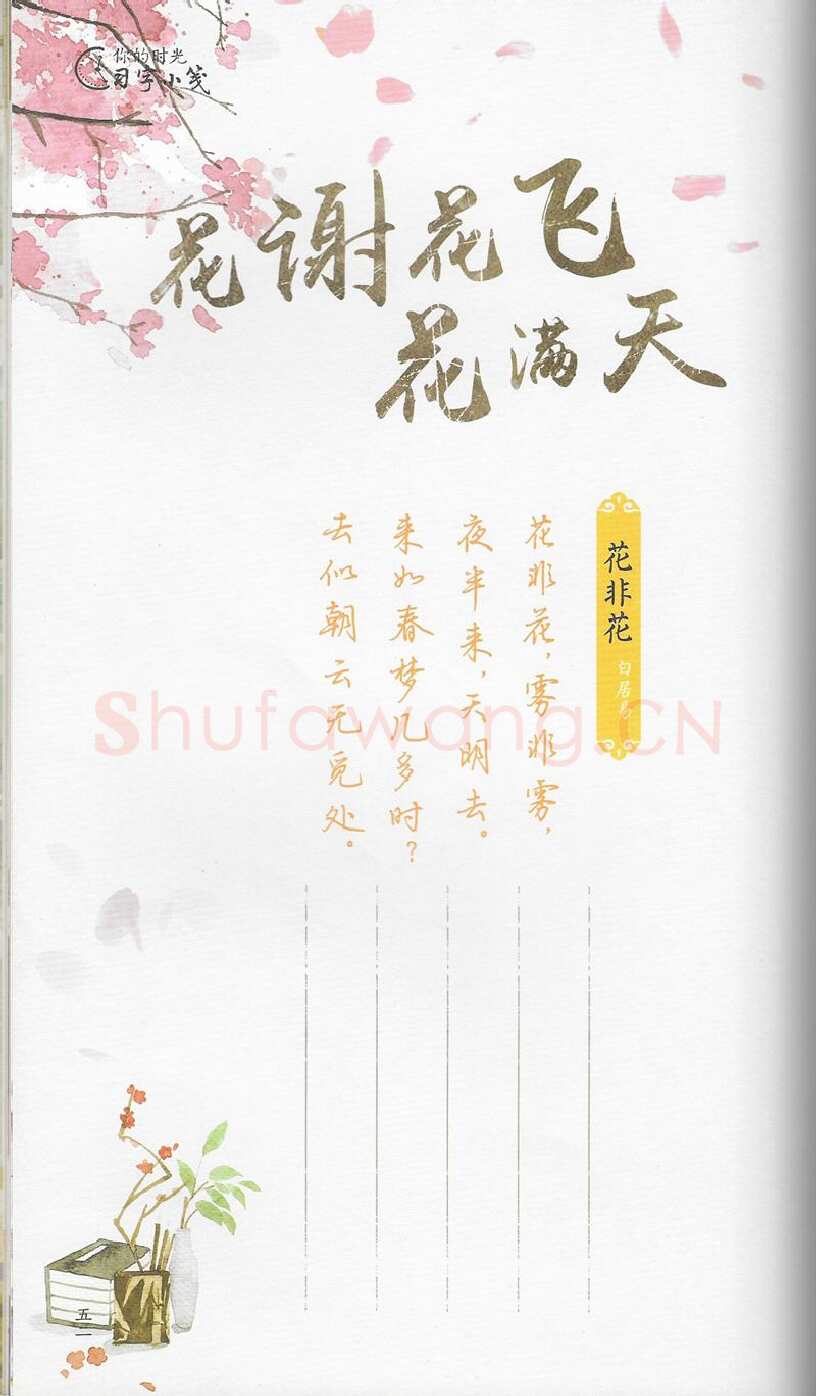 你的时光
习字小笺
花谢花飞
花满天
花非花
白居易
花非花，雾非雾，
夜半来，天明去。
来如春梦几多时？
去似朝云无觅处。
Shufawang.CN
五二